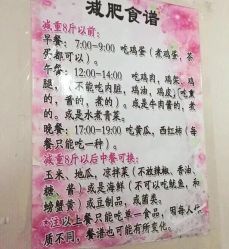 减肥食谱
减重8斤以前：
早餐：7:00-9:00 吃鸡蛋（煮鸡蛋、茶
买都可以）。
午餐：12:00-14:00 吃鸡肉，鸡架，鸡
腿，（不能吃内脏，鸡油，鸡皮，吃熏
的，酱的，煮的）。或是牛肉酱的，煮
的。或是水煮青菜。
晚餐：17:00-19:00 吃黄瓜，西红柿（每
餐只能吃一种）。
减重8斤以后中餐可换：
玉米、地瓜，凉拌菜（不放辣椒、香油、
糖、酱）或是海鲜（不可以吃鱿鱼，和
螃蟹黄）或豆制品，或菌类。
注以上餐只能吃单一食品，因每人体
质不同，餐谱也可能有所变化。